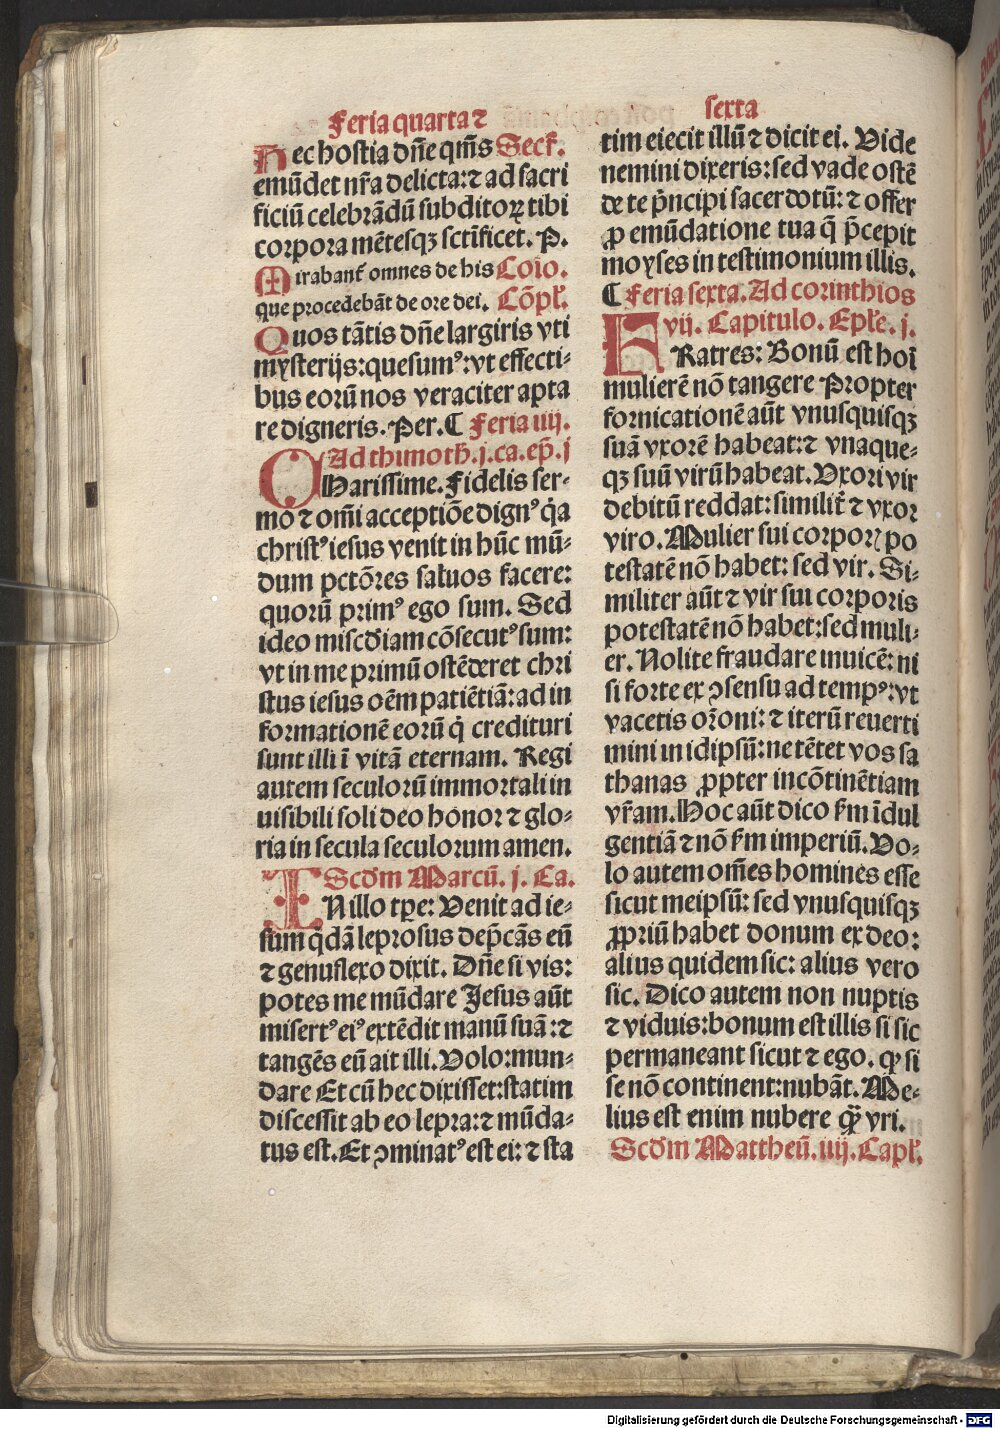 Feria quarta ⁊
sexta
Hec hostia dñe qm̄s Secr̄.
emūdet nr̄a delicta:⁊ ad sacri
ficiū celebrādū subditoꝝ tibi
corpora mētesqꝫ sctīficet. P.
Mirabant̄ omnes de his Cōio.
que procedebāt de ore dei. Cōpl̄.
Quos tātis dñe largiris vti
mysterijs:quesumꝰ:vt effecti⸗
bus eorū nos veraciter apta
re digneris. Per. ¶ Feria iiij.
Ad thimoth̄. j. ca. ep̄. j
CHarissime. Fidelis ser⸗
mo ⁊ om̄i acceptiōe dignꝰ q̄a
christꝰ iesus venit in hūc mū⸗
dum pctōres saluos facere:
quorū primꝰ ego sum. Sed
ideo miscd̄iam cōsecutꝰ sum:
vt in me primū ostēderet chri
stus iesus oēm patiētiā: ad in
formationē eorū q̄ credituri
sunt illi ī vitā eternam. Regi
autem seculorū immortali in
uisibili soli deo honor ⁊ glo⸗
ria in secula seculorum amen.
Scd̄m Marcū. j. Ca.
IN illo tp̄e: Venit ad ie⸗
sum q̄dā leprosus dep̄cās eū
⁊ genuflexo dixit. Dñe si vis:
potes me mūdare Jesus aūt
misertꝰ eiꝰ extēdit manū suā:⁊
tangēs eū ait illi. Volo:mun⸗
dare Et cū hec dixisset:statim
discessit ab eo lepra:⁊ mūda⸗
tus est. Et ꝯminatꝰ est ei: ⁊ sta
tim eiecit illū ⁊ dicit ei. Vide
nemini dixeris:sed vade ostē
de te p̄ncipi sacerdotū: ⁊ offer
ꝓ emūdatione tua q̄ p̄cepit
moyses in testimonium illis.
¶ Feria sexta. Ad corinthios
vij. Capitulo. Epl̄e. j.
FRatres: Bonū est hoī
mulierē nō tangere Propter
fornicationē aūt vnusquisqꝫ
suā vxorē habeat:⁊ vnaque⸗
qꝫ suū virū habeat. Vxori vir
debitū reddat: similit̄ ⁊ vxor
viro. Mulier sui corporꝭ po
testatē nō habet: sed vir. Si⸗
militer aūt ⁊ vir sui corporis
potestatē nō habet:sed muli⸗
er. Nolite fraudare inuicē: ni
si forte ex ꝯsensu ad tempꝰ:vt
vacetis or̄oni: ⁊ iterū reuerti
mini in idipsū:ne tētet vos sa
thanas ꝓpter incōtinētiam
vr̄am. Hoc aūt dico s̄m īdul
gentiā ⁊ nō s̄m imperiū. Vo⸗
lo autem om̄es homines esse
sicut meipsū: sed vnusquisqꝫ
ꝓpriū habet donum ex deo:
alius quidem sic: alius vero
sic. Dico autem non nuptis
⁊ viduis:bonum est illis si sic
permaneant sicut ⁊ ego. ꝙ si
se nō continent:nubāt. Me⸗
lius est enim nubere q̄ꝫ vri.
Scd̄m Mattheū. iiij. Capl̄.
Digitalisierung gefördert durch die Deutsche Forschungsgemeinschaft - DFG